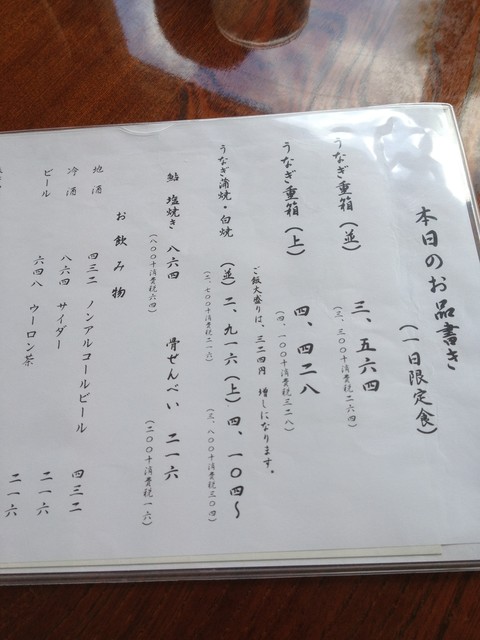 本日のお品書き
（一日限定食）
うなぎ重箱（並） 三、五六四
（三、三〇〇＋消費税二六四）
うなぎ重箱（上） 四、四二八
（四、一〇〇＋消費税三二八）
ご飯大盛りは、三二四円 増しになります。
うなぎ蒲焼・白焼 （並）二、九一六（上）四、一〇四〜
（二、七〇〇＋消費税二一六） （三、八〇〇＋消費税三〇四）
鮎 塩焼き 八六四 骨せんべい 二一六
（八〇〇＋消費税六四） （二〇〇＋消費税一六）
お飲み物
地酒 四三二 ノンアルコールビール 四三二
冷酒 八六四 サイダー 二一六
ビール 六四八 ウーロン茶 二一六